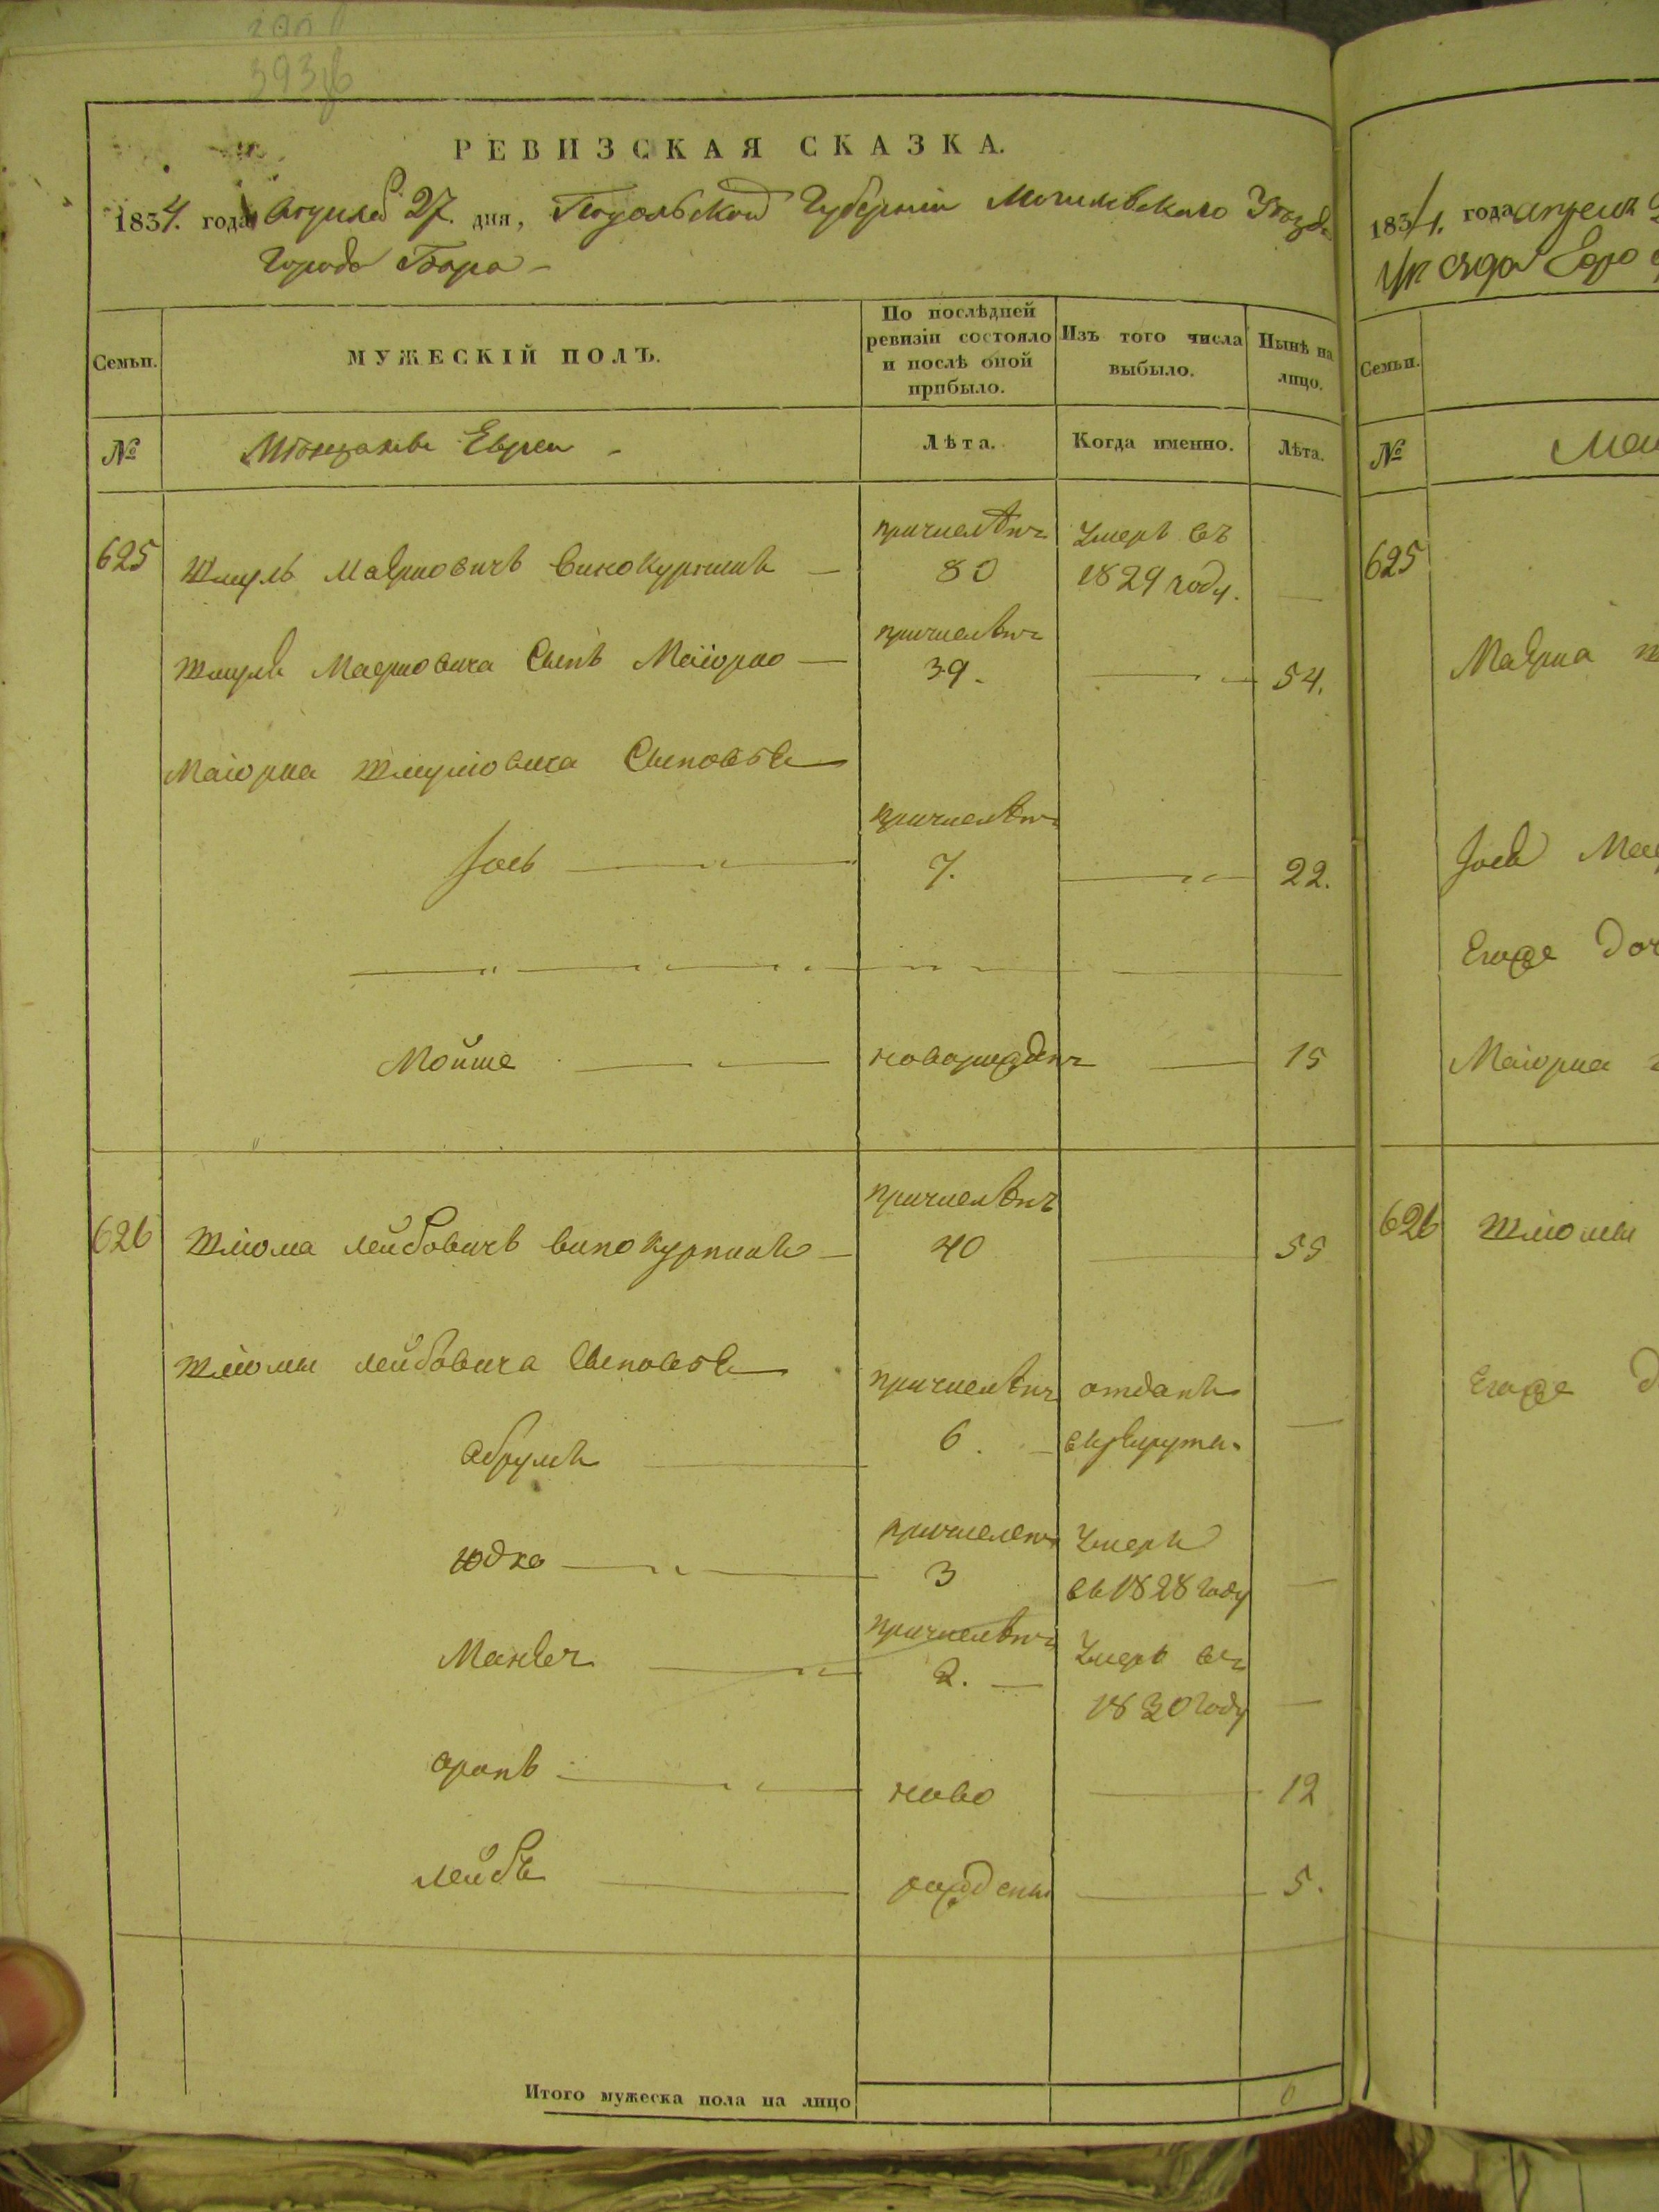 393
РЕВИЗСКАЯ СКАЗКА.
1834. года Апреля 27. дня, Подольской Губернии Могилевского Уезда
Города Бара
Семьи.
МУЖЕСКІЙ ПОЛЪ.
По послѣдней ревизіи состояло и послѣ оной прибыло.
Изъ того числа выбыло.
Нынѣ на лицо.
№
Мѣщанѣ Евреи
Лѣта.
Когда именно.
Лѣта.
625
Шмуль Маеровичъ Винокурникъ
причисленъ 80
Умеръ въ 1829 году.
Шмуля Маеровича Сынъ Маіорко
причисленъ 39.
54.
Маіорка Шмулювича Сыновья
Іось
причисленъ 7.
22.
Мойше
новорожденъ
15
626
Шліома Лейбовичъ Винокурникъ
причисленъ 40
55
Шліомы Лейбовича Сыновья
Абрумъ
причисленъ 6.
отданъ в рекруты.
Юдко
причисленъ 3
Умеръ въ 1828 году
причисленъ 2.
Умеръ въ 1830 году
Аронъ
ново
12
Лейбъ
рожденъ
5.
Итого мужеска пола на лицо
1834. года апреля
Семьи.
№
625
Іося
Маіорка
626
Шліомы